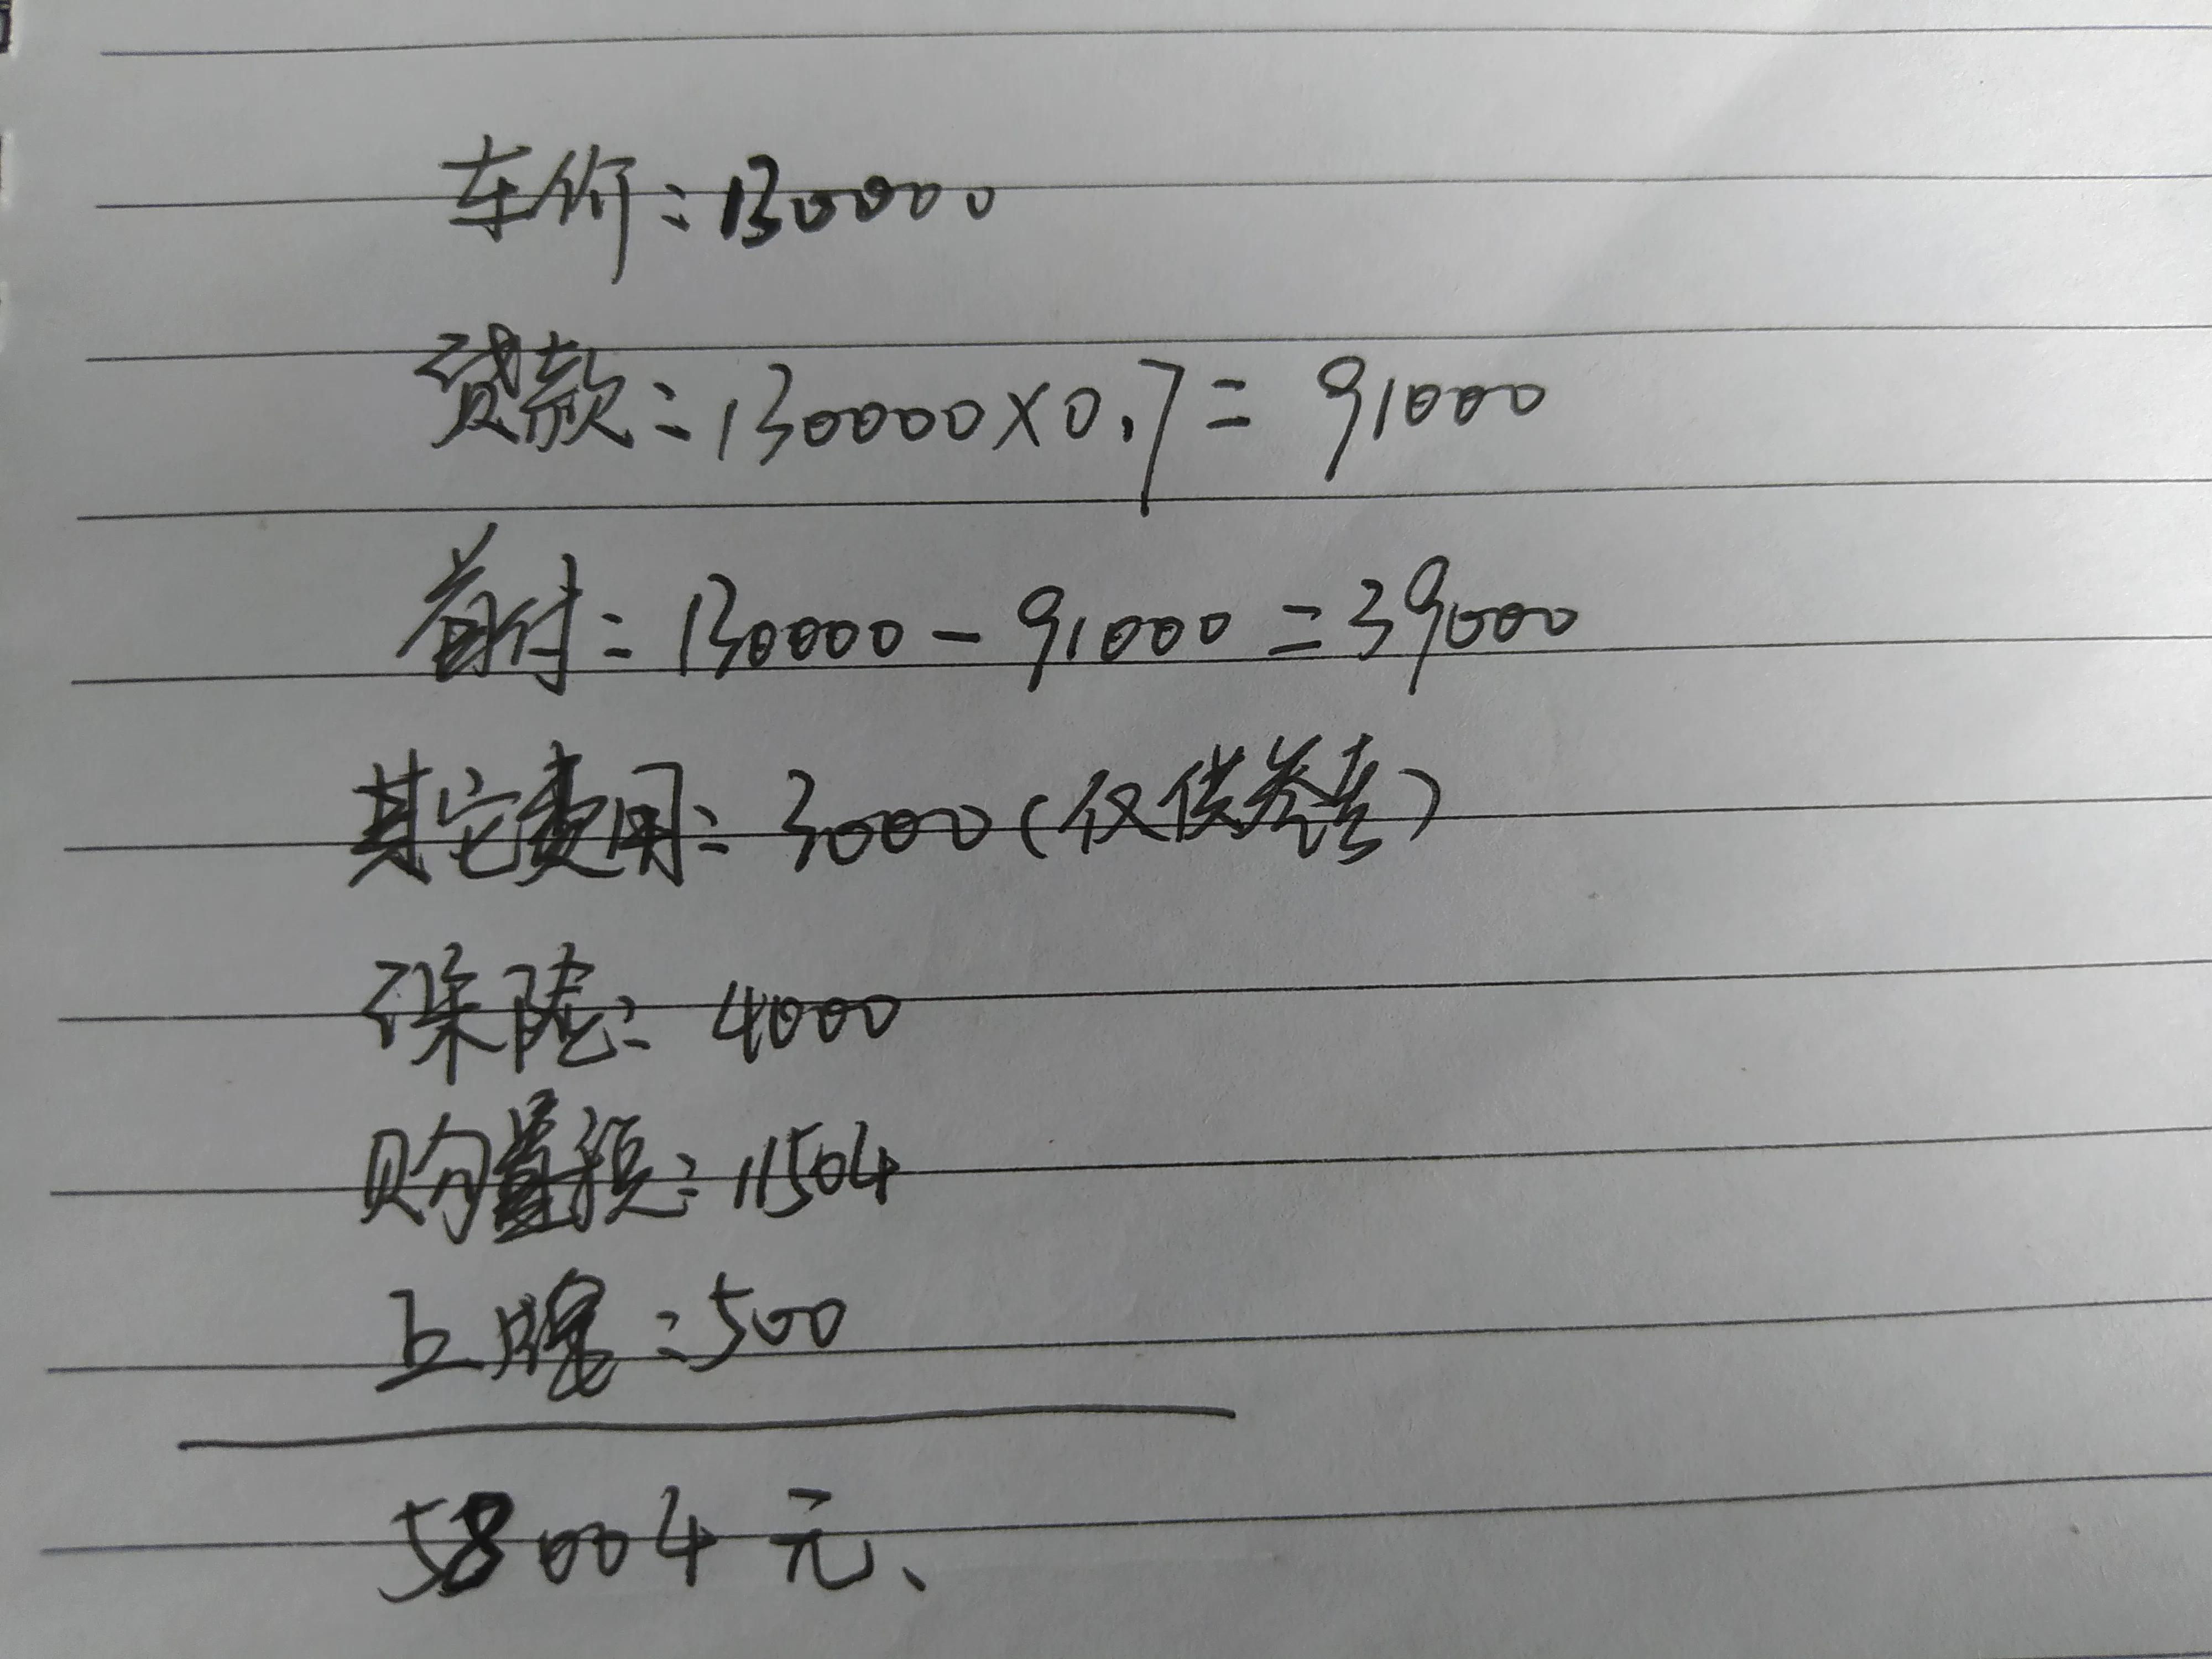 车价：130000
贷款：130000×0.7=91000
首付：130000-91000=39000
其它费用：3000（仅供参考）
保险：4000
购置税：11504
上牌：500
58004元、